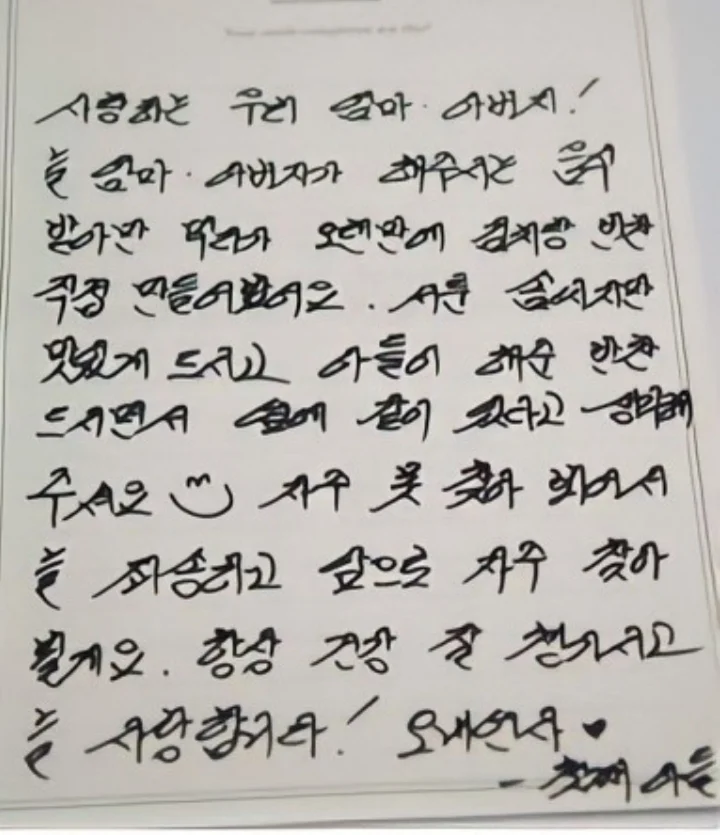 사랑하는 우리 엄마·아버지!
늘 엄마·아버지가 해주시는 음식
받아만 먹다가 오랜만에 김치랑 반찬
직접 만들어봤어요. 서툰 솜씨지만
맛있게 드시고 아들이 해준 반찬
드시면서 옆에 같이 있다고 생각해
주세요 자주 못 찾아 봬어서
늘 죄송하고 앞으로 자주 찾아
뵐게요. 항상 건강 잘 챙기시고
늘 사랑합니다! 오래연사 ♥
- 첫째 아들